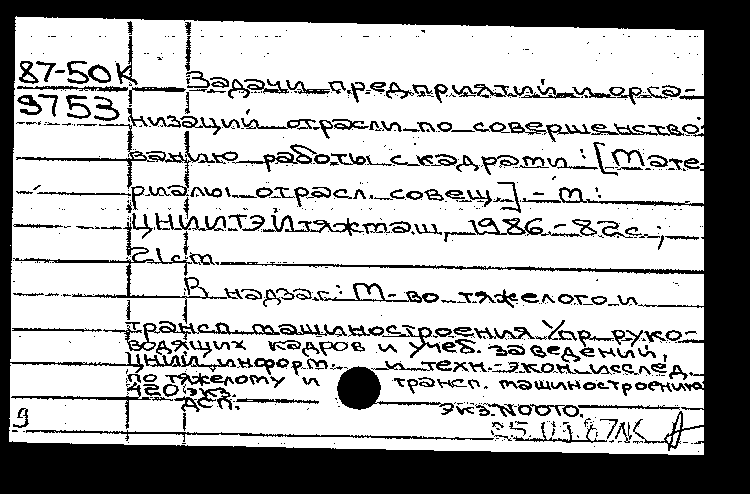 87-50К
9753
Задачи предприятий и орга-
низаций отрасли по совершенство-
ванию работы с кадрами : [Мате-
риалы отрасл. совещ.] - М. :
ЦНИИТЭИтяжмаш, 1986.-82с.;
21см.
В надзаг.: М-во тяжелого и
трансп. машиностроения, Упр. руко-
водящих кадров и учеб. заведений,
ЦНИИ информ. и техн.-экон. исслед.
по тяжелому и трансп. машиностроению
420 экз.
ДСП. экз.N0010.
9 25.09.87 NK